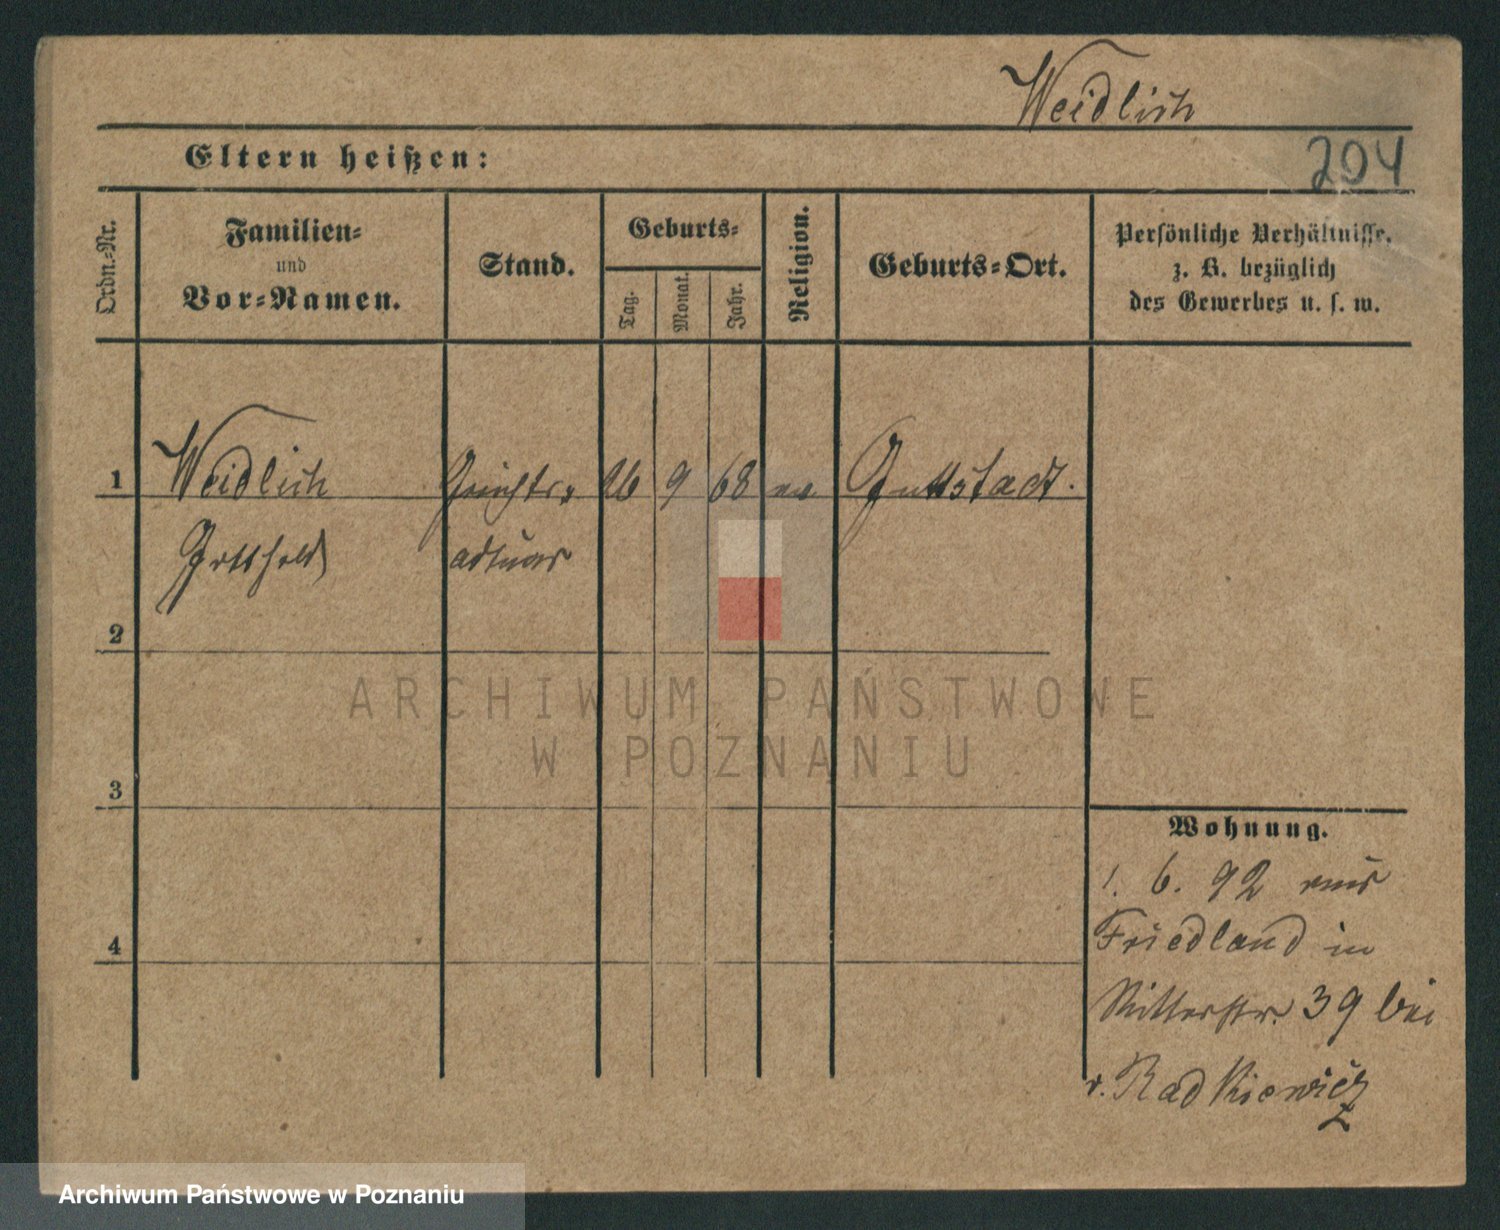 Weidlich
204
Eltern heißen:
Ordn.-Nr.
Familien-
und
Vor-Namen.
Stand.
Geburts-
Tag.
Monat.
Jahr.
Religion.
Geburts-Ort.
Persönliche Verhältnisse,
z. B. bezüglich
des Gewerbes u. s. w.
1 Weidlich Gerichts- 26 9 68 ev Guttstadt.
Gotthold aktuar
2
3
4
Wohnung.
1. 6. 92 aus
Friedland in
Ritterstr. 39 bei
v. Radkiewicz
ARCHIWUM PAŃSTWOWE
W POZNANIU
Archiwum Państwowe w Poznaniu